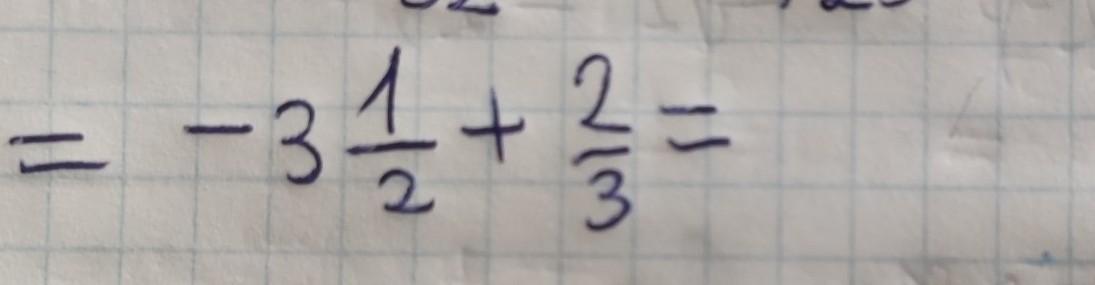 = -3 1/2 + 2/3 =